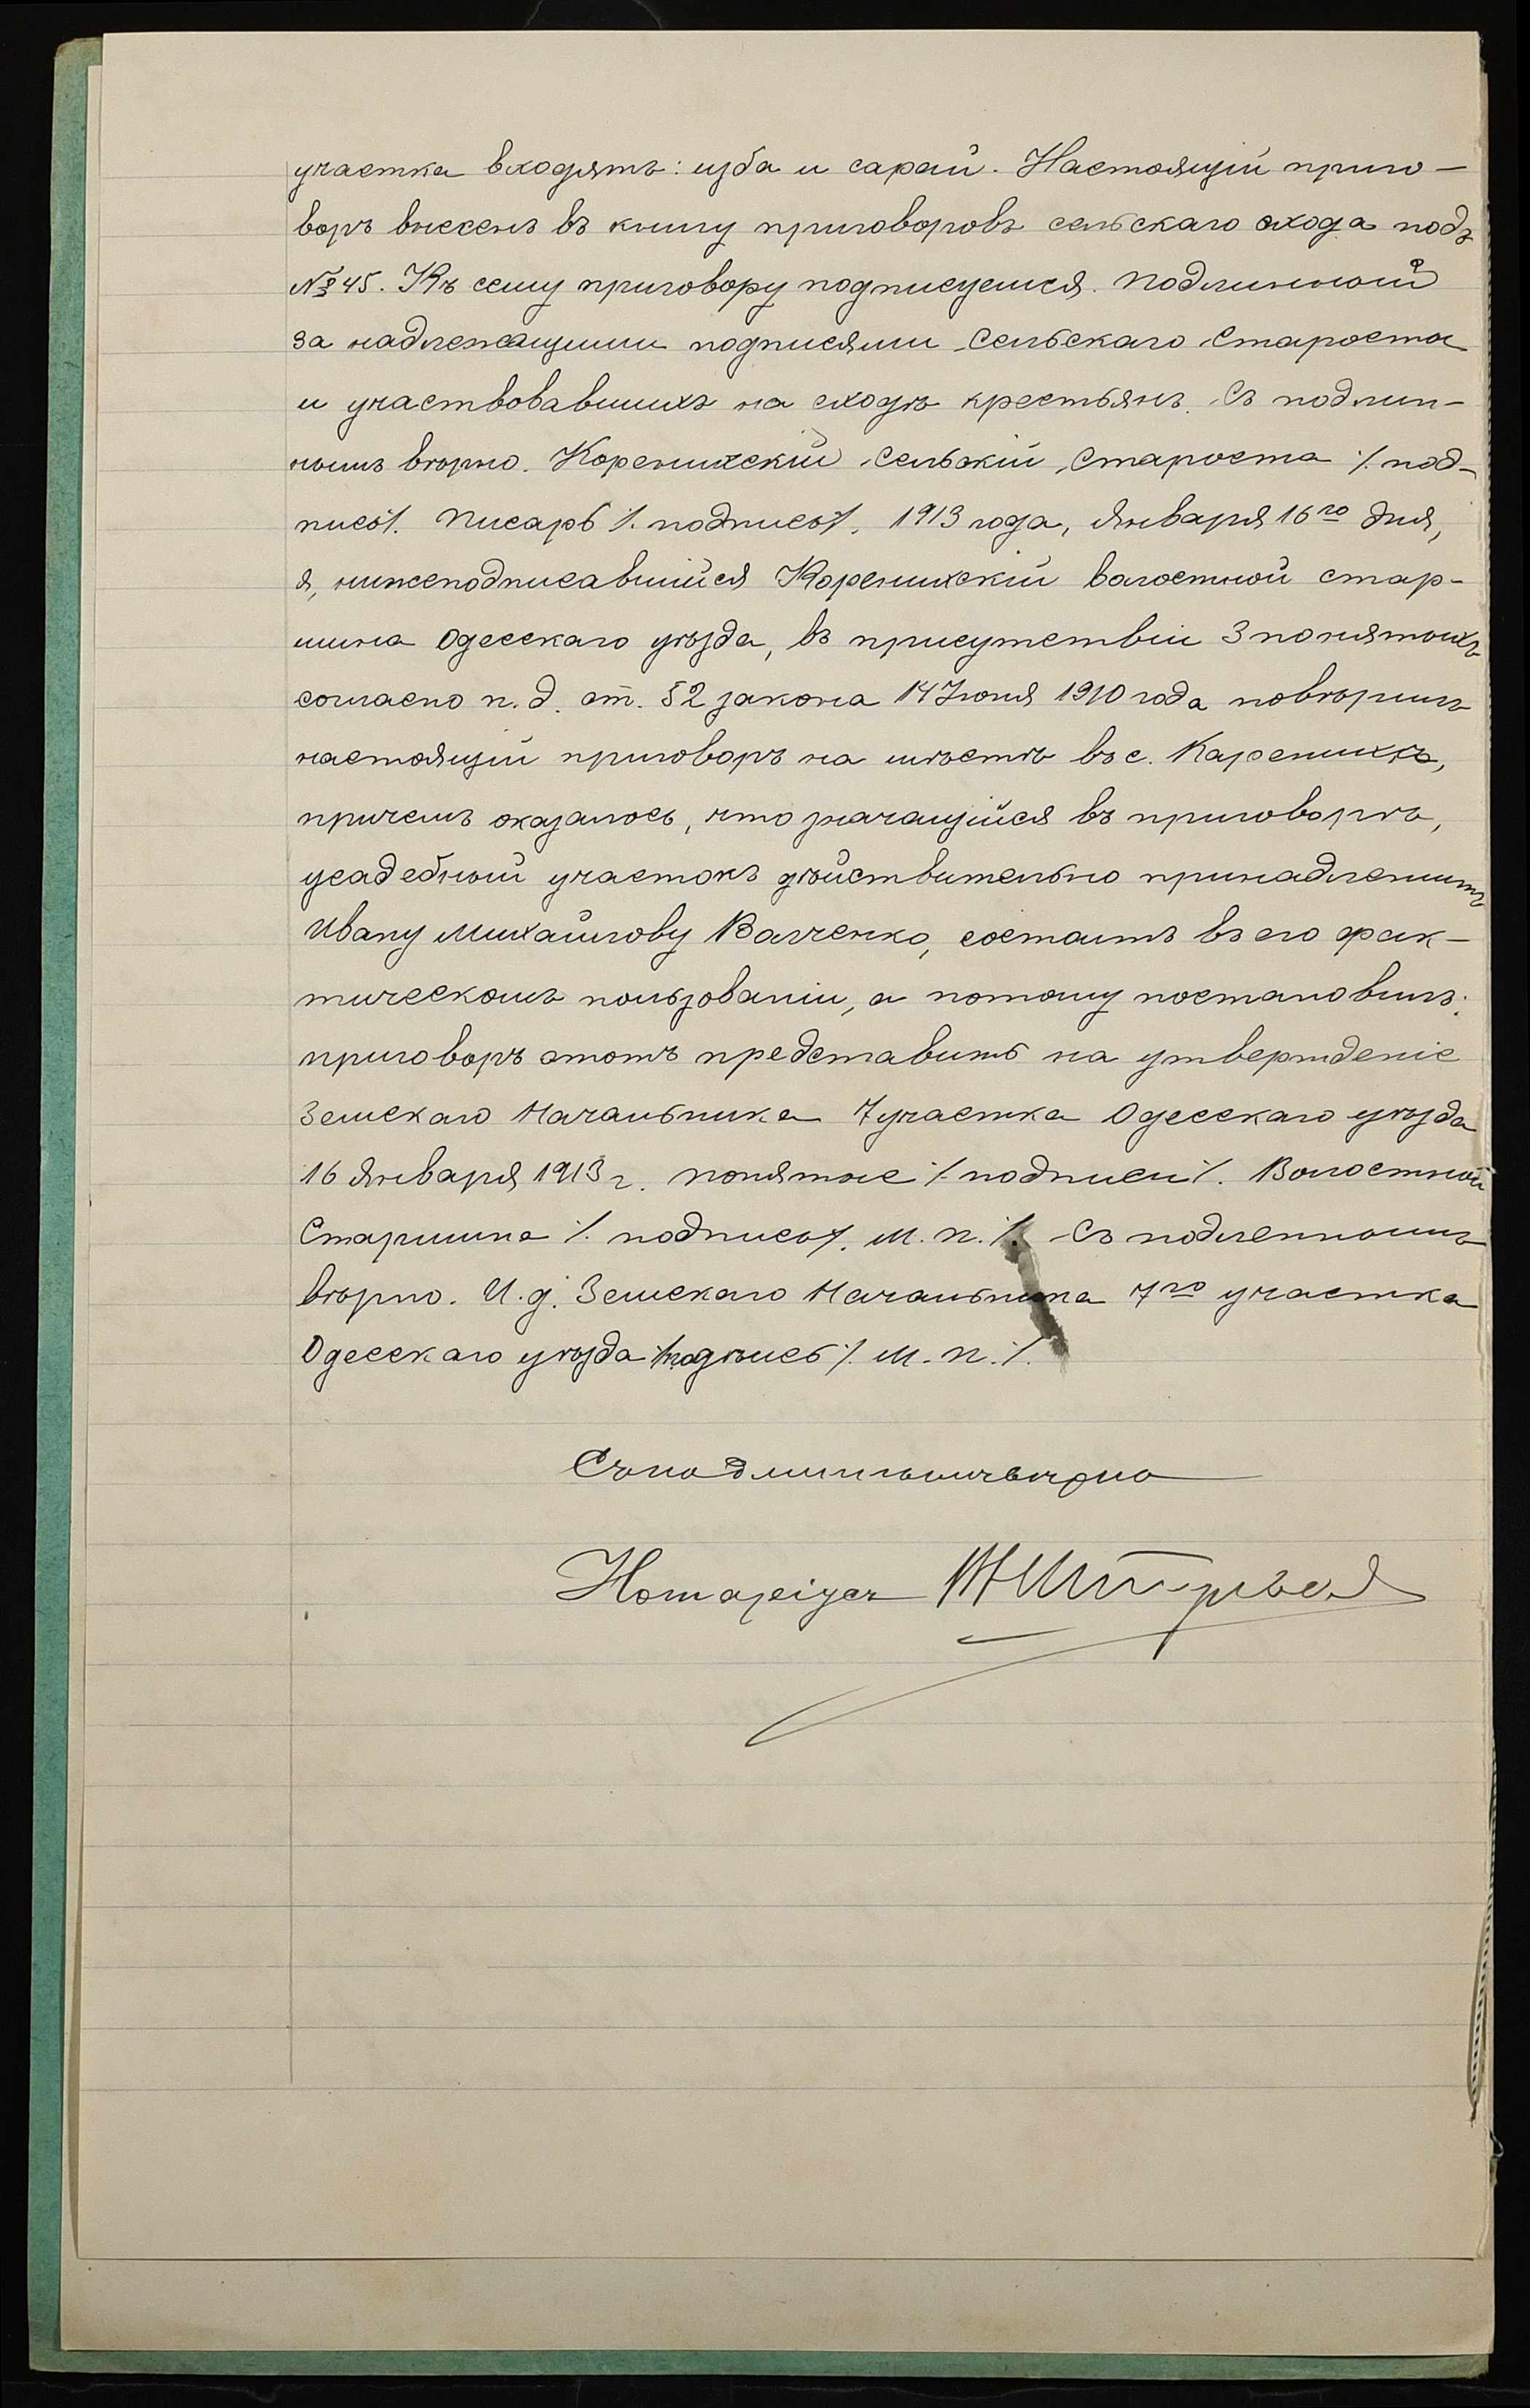 участка входятъ: изба и сарай. Настоящій приго-
воръ внесенъ въ книгу приговоровъ сельскаго схода подъ
№ 45. Къ сему приговору подписуемся. Подлинный
за надлежащими подписями Сельскаго Старосты
и участвовавшихъ на сходѣ крестьянъ. Съ подлин-
нымъ вѣрно. Коренихскій Сельскій Староста /. под-
пись/. Писарь /. подпись/. 1913 года, Января 16го дня,
я, нижеподписавшійся Коренихскій волостной стар-
шина Одесскаго уѣзда, въ присутствіи 3 понятыхъ
согласно п. д. ст. §2 закона 14 Іюня 1910 года повѣрилъ
настоящій приговоръ на мѣстѣ въ с. Каренихѣ,
причемъ оказалось, что значащійся въ приговорѣ,
усадебный участокъ дѣйствительно принадлежитъ
Ивану Михайлову Валченко, состоитъ въ его фак-
тическомъ пользованіи, а потому постановилъ:
приговоръ этотъ представить на утвержденіе
Земскаго Начальника 7 участка Одесскаго уѣзда
16 Января 1913 г. Понятые /. подписи/. Волостной
Старшина /. подпись/. М. П. /. Съ подленнымъ
вѣрно. И. д. Земскаго Начальника 7го участка
Одесскаго уѣзда /подпись/. М. П. /.
Съ подлиннымъ вѣрно
Нотаріусъ